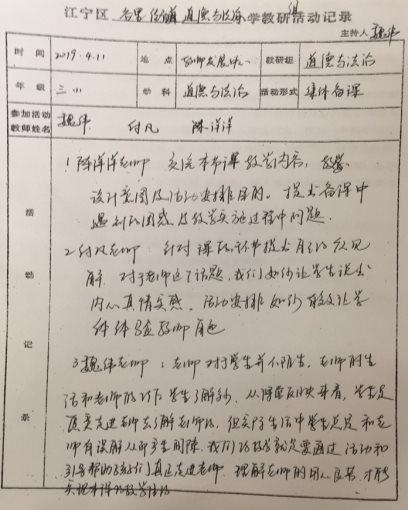 江宁区 道德与法治学教研组活动记录
主持人:魏伟
时间 2019.4.11 地点 教师发展中心 教研组 道德与法治
年级 三 学科 道德与法治 活动形式 集体备课
参加活动教师姓名 魏伟 付凡 陈洋洋
活动记录
1.陈洋洋老师 交流本节课教学内容,教学
设计意图及活动安排目的。提出备课中
遇到的困惑及教学实施过程中问题.
2.付凡老师 针对课环节提出自己的意见
解.对于老师这个话题,我们如何让学生说出
内心真情实感.活动安排如何有效让学
体体验教师角色
3.魏伟老师:老师对于学生并不陌生,老师的生
活和老师的 学生了解 ,从 来看,学生是
愿意走进老师去了解老师的,但实际生活中学生总是和老
师有误解从而产生间隙,我们的教学就是要通过活动和
引导帮助孩子们真正走进老师.理解老师的用心良苦.才能
实现本课的教学目的